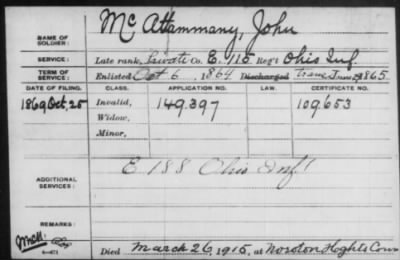 NAME OF SOLDIER: McAttammany, John
SERVICE: Late rank, Private Co. E. 115 Reg't Ohio Inf.
TERM OF SERVICE: Enlisted Oct 6, 1864 Discharged trans June 1865.
DATE OF FILING. CLASS. APPLICATION NO. LAW. CERTIFICATE NO.
1869 Oct, 25 Invalid, 149.397 109653
Widow,
Minor,
E 188 Ohio Inf!
ADDITIONAL SERVICES:
REMARKS:
Died March 26, 1915, at Noroton Hghts Conn